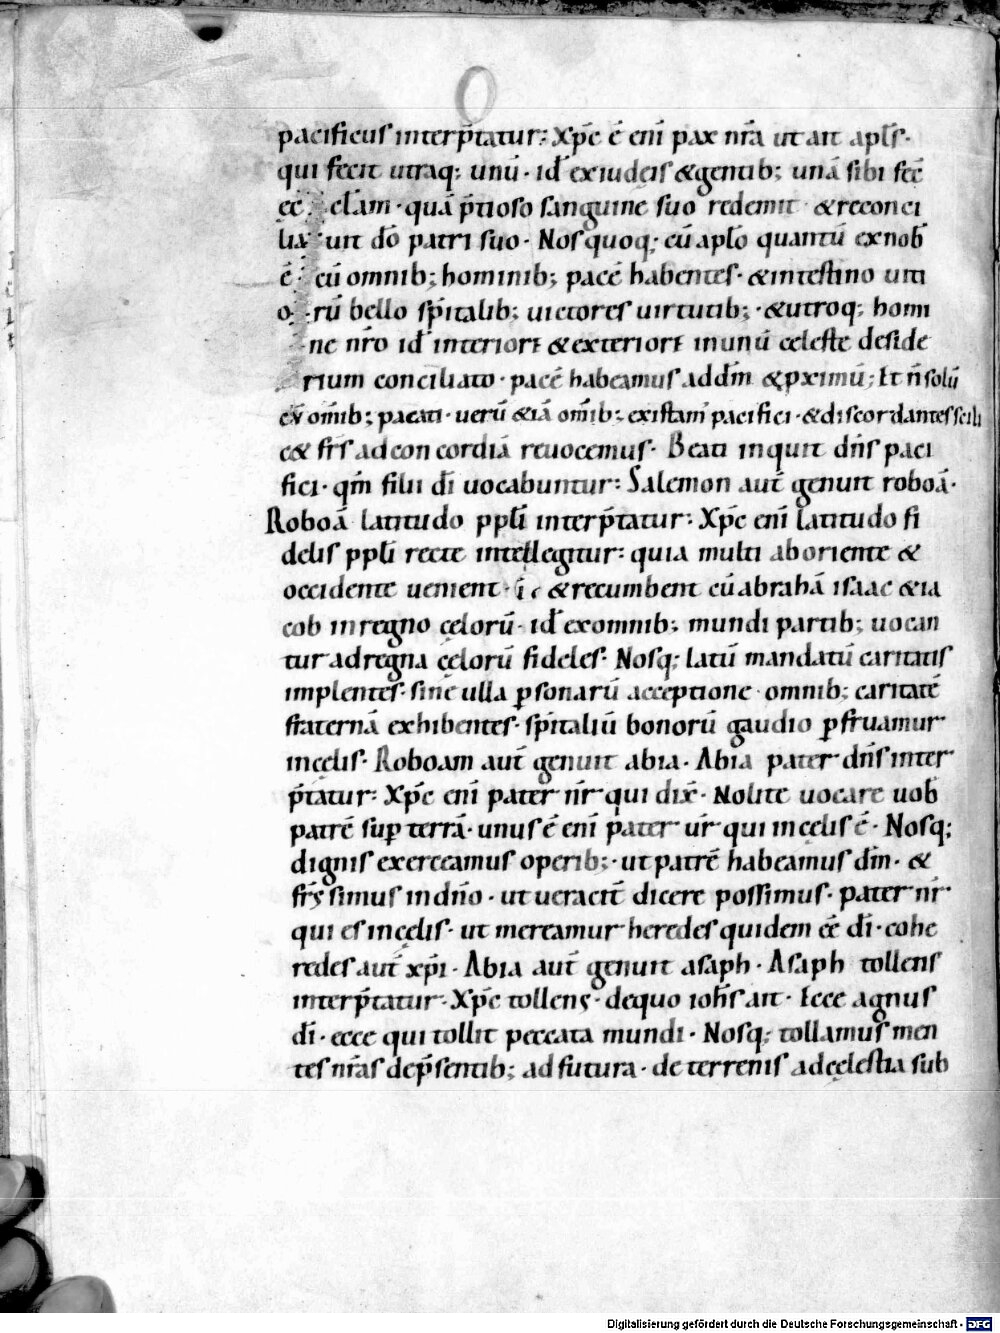 O
pacificus interp̄tatur: Xp̄c ē eni̅ pax nr̄a ut ait apl̄s·
qui fecit utraq; unū· id̄ exiudęis &gentib; unā sibi fec̄
ęc clam̄· quā p̄tioso sanguine suo redemit &reconci
lia uit dō patri suo· Nos quoq; cū aplō quantū exnob̄
ē cū omnib; hominib; pacē habentes· &intestino uiti
o rū bello sp̄italib; uictores uirtutib;· &utroq; homi
ne nr̄o id̄ interiori &exteriori inunū cęleste deside
rium conciliato· pacē habeamus add̄m &pximū; Et n̄ solū
cū om̄ib; pacati· uerū &iā om̄ib; existam̄ pacifici· &discordantes scili
c& fr̄s adcon cordiā reuocemus· Beati inquit dn̄s paci
fici· qm̄ filii d̄i uocabuntur: Salemon aut̄ genuit roboā·
Roboā latitudo ppl̄i interp̄tatur: Xp̄c eni̅ latitudo fi
delis ppl̄i recte intellegitur: quia multi aboriente &
occidente uenient· &recumbent cū abrahā isaac &ia
cob inregno cęlorū· id̄ exomnib; mundi partib; uocan
tur adregna cęlorū fideles· Nosq; latū mandatū caritatis
implentes· sine ulla ꝑsonarū acceptione omnib; caritatē
fraternā exhibentes· sp̄italiū bonorū gaudio ꝑfruamur
incęlis· Roboam aut̄ genuit abia· Abia pater dn̄s inter
p̄tatur: Xp̄c eni̅ pater nr̄ qui dix̄· Nolite uocare uob̄
patrē suꝑ terrā· unus ē eni̅ pater ur̄ qui incęlis ē· Nosq;
dignis exerceamus operib;· ut patrē habeamus dm̄· &
fr̄s simus indn̄o· ut ueracit̄ dicere possimus· pater nr̄
qui es incęlis· ut mereamur heredes quidem eē d̄i· cohe
redes aut̄ xp̄i· Abia aut̄ genuit asaph· Asaph tollens
interp̄tatur· Xp̄c tollens· dequo ioh̄s ait· Ecce agnus
d̄i· ecce qui tollit peccata mundi· Nosq; tollamus men
tes nr̄as dep̄sentib; adfutura· deterrenis adcęlestia sub
Digitalisierung gefördert durch die Deutsche Forschungsgemeinschaft - DFG